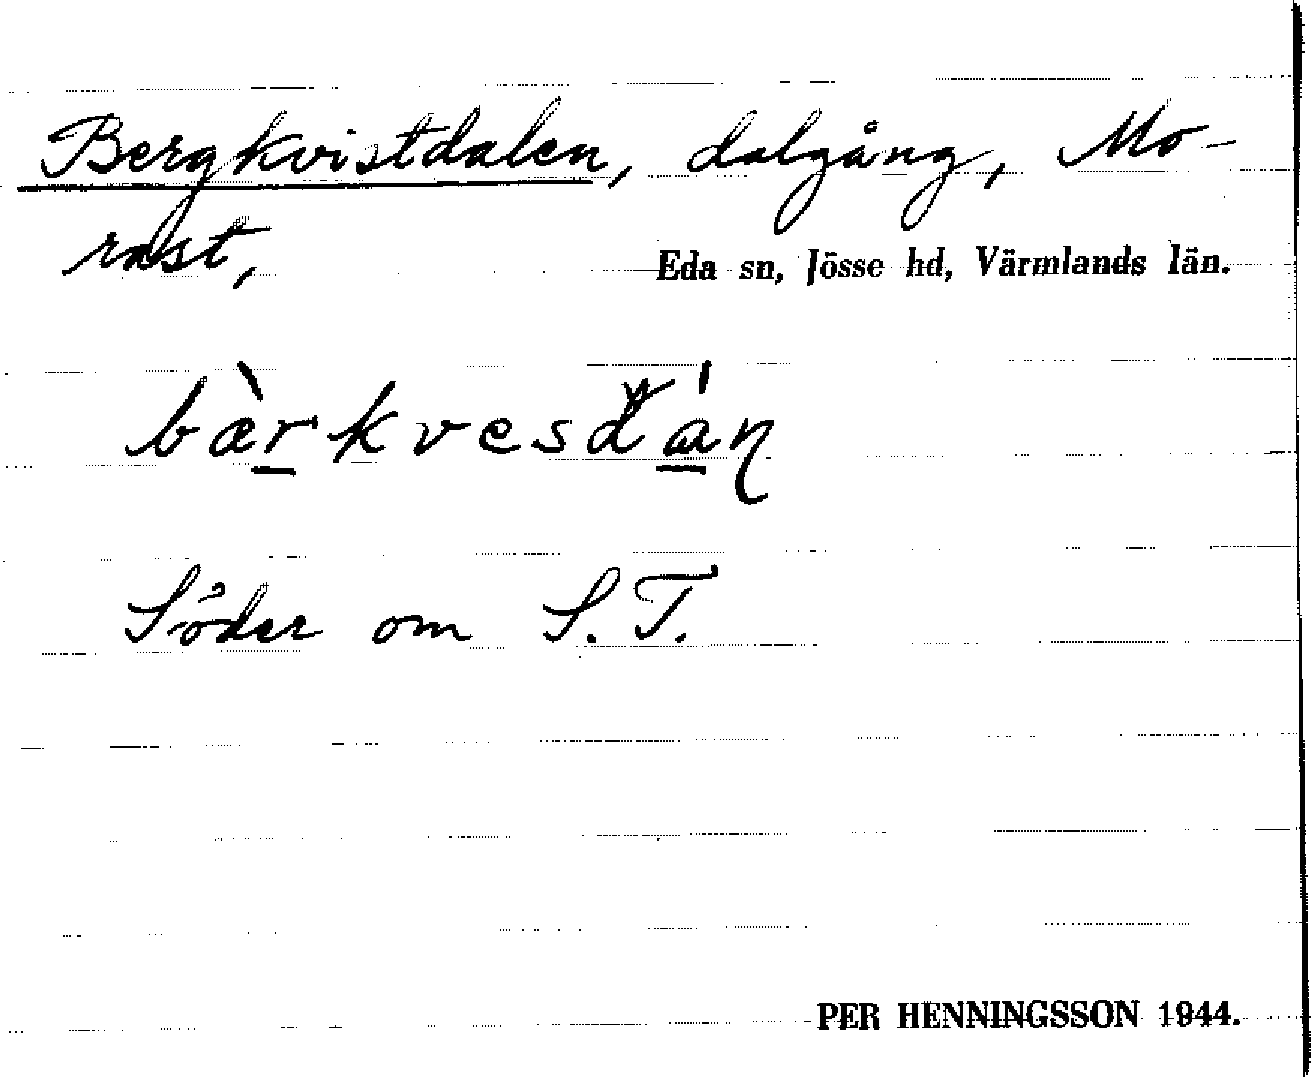 Bergkvistdalen, dalgång, Mo-
rast,
Eda sn, Jösse hd, Värmlands län.
bæ̀rkvesdáṇ
Söder om S. T.
PER HENNINGSSON 1944.